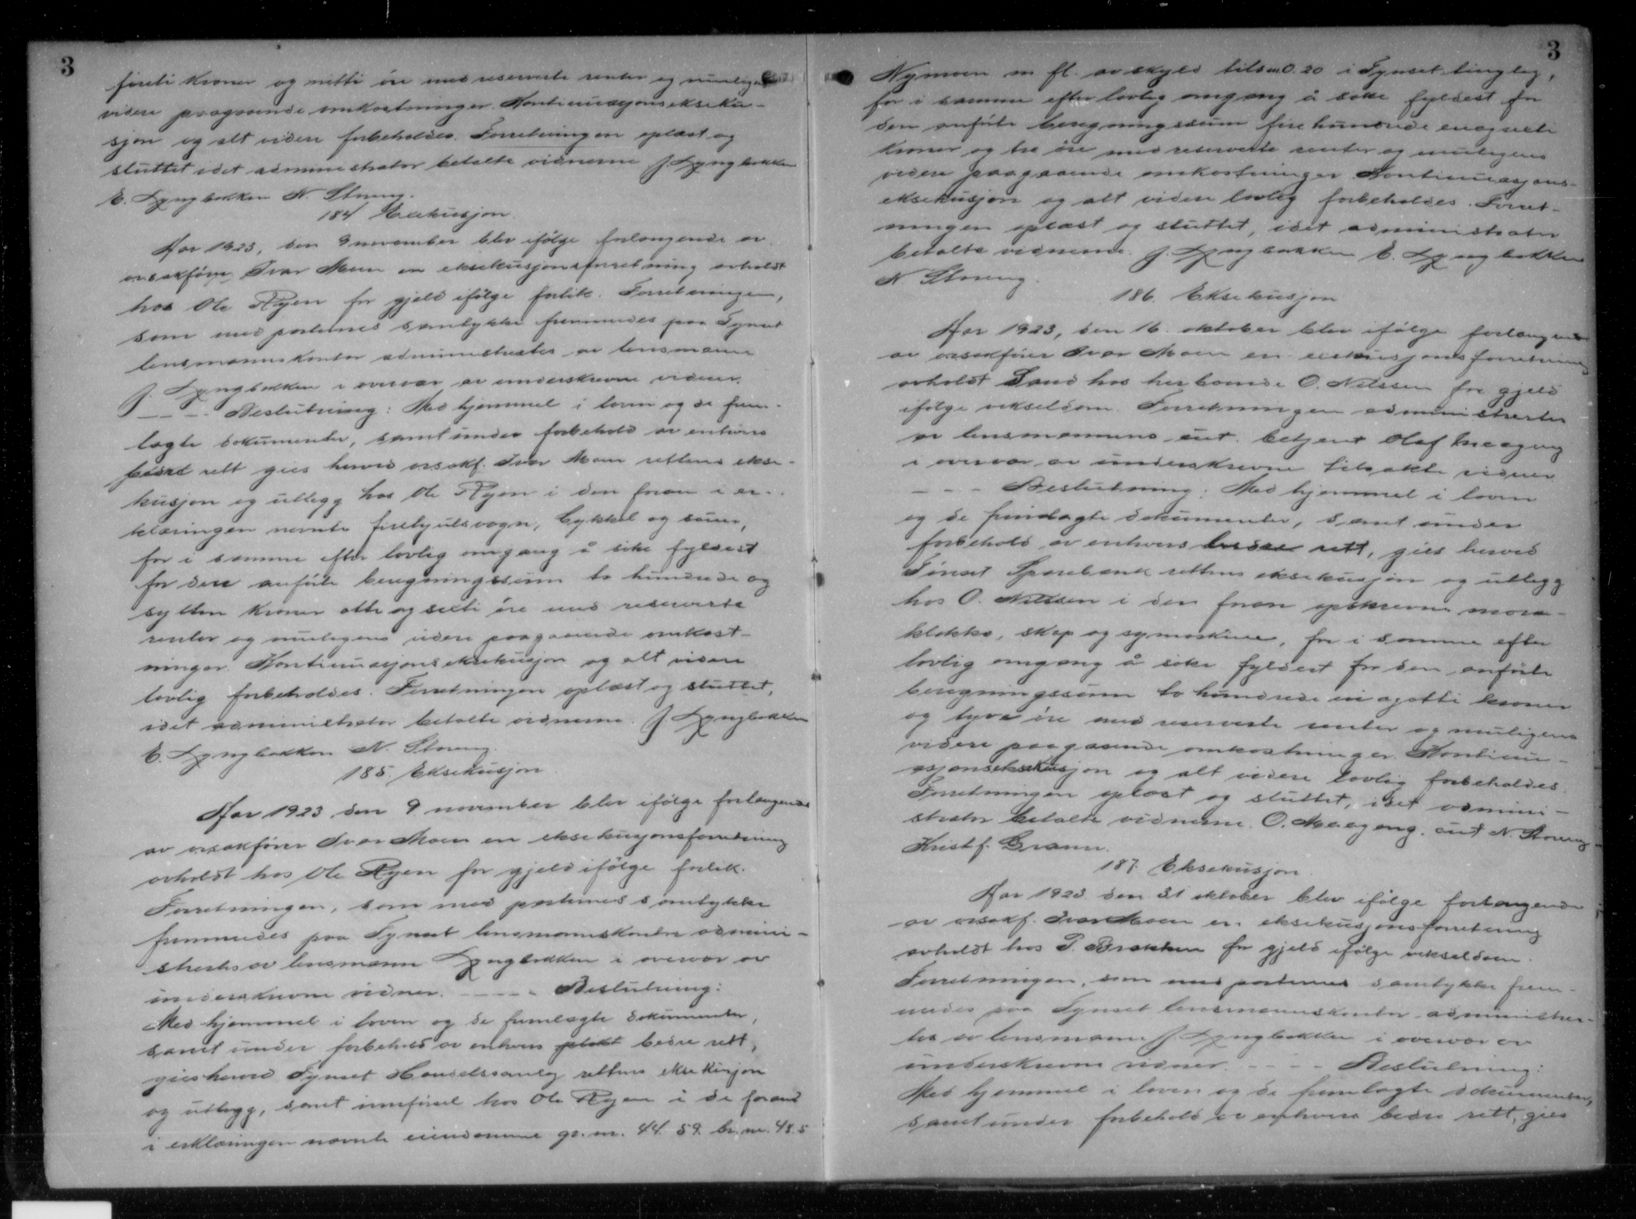 3
firti kroner og nitti øre med reserverte renter og muligens
videre paagaaende omkostninger. Kontinuasjonseksekú-
sjon og alt videre forbeholdes. Forretningen oplæst og
sluttet idet administrator betalte vidnerne J. Lyngbakken
E. Lyngbakken N. Storeng.
184 Eksekusjon
Aar 1923, den 9 november blev ifølge forlangende av
orsakfører Ivar Moen en eksekusjonsforretning avholdt
hos Ole Ryen for gjeld ifølge forlik. Forretningen,
som med partenes samtykke fremmedes paa Tynset
lensmannskontor administrertes av lensmann
J. Lyngbakken i overvær av underskrevne vidner.
- - - - Beslutning: Med hjemmel i loven og de frem-
lagte dokumenter, samt under forbehold av enhvers
bedre rett gies herved orsakf. Ivar Moen rettens ekse-
kusjon og utlegg hos Ole Ryen i den foran i er-
klæringen nevnte firehjulsvogn, Cykkel og sauer,
for i samme efter lovlig omgang å søke fyldest
for den anførte beregningssum to hundrede og
sytten kroner otte og seksti øre med reserverte
renter og muligens videre paagaaende omkost-
ninger. Kontinuasjonseksekusjon og alt videre
lovlig forbeholdes. Forretningen oplæst og sluttet,
idet administrator betalte vidnerne. J. Lyngbakken
E. Lyngbakken N. Storeng.
185. Eksekusjon
Aar 1923 den 9 november blev ifølge forlangende
av orsakfører Ivar Moen en eksekusjonsforretning
avholdt hos Ole Ryen for gjeld ifølge forlik.
Forretningen, som med partenes samtykke
fremmedes paa Tynset lensmannskontor admini-
strertes av lensmann Lyngbakken i overvær av
underskrevne vidner. - - - - Beslutning:
Med hjemmel i loven og de fremlagte dokumenter,
samt under forbehold av enhvers bedre rett,
gies herved Tynset Handelssamlag rettens eksekusjon
og utlegg, samt innførsel hos Ole Ryen i de foran
i erklæringen nevnte eiendomme gr. nr. 44. 59. br. nr. 48. 5
3
Nymoen m. fl. av skyld tilsm. 0.20 i Tynset tinglag,
for i samme efter lovlig omgang å søke fyldest for
den anførte beregningssum fire hundrede enognitti
kroner og tre øre med reserverte renter og muligens
videre paagaaende omkostninger Kontinuasjons-
eksekusjon og alt videre lovlig forbeholdes. Forret-
ningen oplæst og sluttet, idet administrator
betalte vidnerne. J. Lyngbakken E. Lyngbakken
N Storeng.
186. Eksekusjon
Aar 1923, den 16. oktober blev ifølge forlangende
av orsakfører Ivar Moen en eksekusjonsforretning
avholdt Sand hos herboende O. Nilssen for gjeld
ifølge vekseldom. Forretningen administrertes
av lensmannens aut. betjent Olaf Meageng
i overvær av underskrevne tilsakte vidner
- - - Beslutning: Med hjemmel i loven
og de fremlagte dokumenter, samt under
forbehold av enhvers bedre rett, gies herved
Tønset Sparebank rettens eksekusjon og utlegg
hos O. Nilssen i den foran opskrevne mora-
klokke, skap og symaskine, for i samme efter
lovlig omgang å søke fyldest for den anførte
beregningssum to hundrede en og otti kroner
og tyve øre med reserverte renter og muligens
videre paagaaende omkostninger. Kontinu-
asjonseksekusjon og alt videre lovlig forbeholdes.
Forretningen oplæst og sluttet, idet admini-
strator betalte vidnerne. O. Meageng. aut N. Storeng
Kristf. Gramm.
187. Eksekusjon
Aar 1923 den 31 oktober blev ifølge forlangende
av orsakf. Ivar Moen en eksekusjonsforretning
avholdt hos P. Brækken for gjeld ifølge vekseldom.
Forretningen, som med partenes samtykke frem-
medes paa Tynset lensmannskontor administrer-
tes av lensmann J. Lyngbakken i overvær av
underskrevne vidner. - - - - Beslutning:
Med hjemmel i loven og de fremlagte dokumenter,
samt under forbehold av enhvers bedre rett, gies